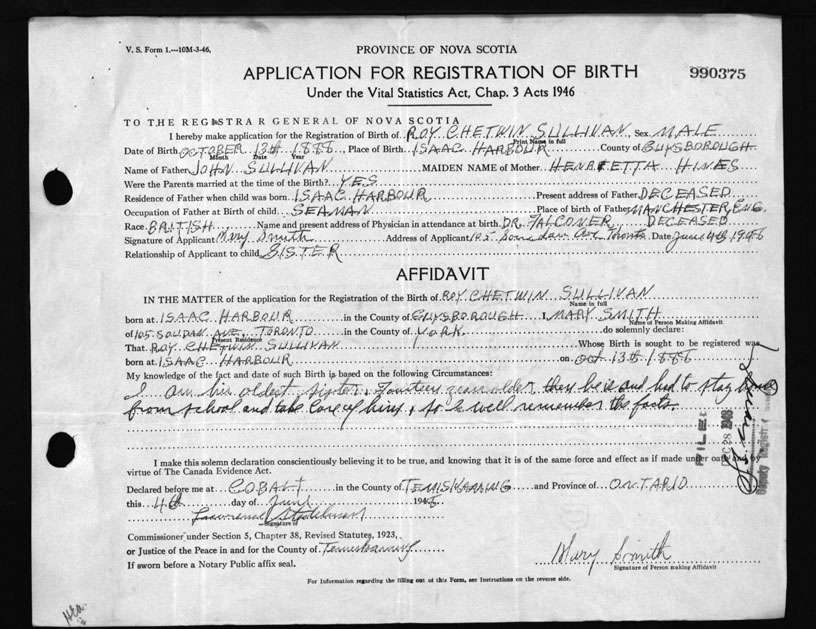 V. S. Form 1.—10M-3-46,
PROVINCE OF NOVA SCOTIA
APPLICATION FOR REGISTRATION OF BIRTH
990375
Under the Vital Statistics Act, Chap. 3 Acts 1946
TO THE REGISTRAR GENERAL OF NOVA SCOTIA
I hereby make application for the Registration of Birth of ROY CHETWIN SULLIVAN, Sex MALE
Print Name in full
Date of Birth OCTOBER 13th 1886, Place of Birth ISAAC HARBOUR County of GUYSBOROUGH
Month Date Year
Name of Father JOHN SULLIVAN MAIDEN NAME of Mother HENRIETTA HINES
Were the Parents married at the time of the Birth? YES
Residence of Father when child was born ISAAC HARBOUR Present address of Father DECEASED
Occupation of Father at Birth of child SEAMAN Place of birth of Father MANCHESTER ENG.
Race BRITISH Name and present address of Physician in attendance at birth DR. FALCONER DECEASED
Signature of Applicant Mary Smith Address of Applicant Soudan Ave Toronto Date June 4th 1946
Relationship of Applicant to child SISTER
AFFIDAVIT
IN THE MATTER of the application for the Registration of the Birth of ROY CHETWIN SULLIVAN
Name in full
born at ISAAC HARBOUR in the County of GUYSBOROUGH I, MARY SMITH
Name of Person Making Affidavit
of 105 SOUDAN AVE, TORONTO in the County of YORK do solemnly declare:
Present Residence
That ROY CHETWIN SULLIVAN Whose Birth is sought to be registered was
born at ISAAC HARBOUR on Oct 13th 1886
My knowledge of the fact and date of such Birth is based on the following Circumstances:
I am his oldest sister, Fourteen years older than he is and had to stay home
from school and take care of him, so I well remember the facts.
FILED
DEC 28
Deputy Registrar
I make this solemn declaration conscientiously believing it to be true, and knowing that it is of the same force and effect as if made under oath and by
virtue of The Canada Evidence Act.
Declared before me at COBALT in the County of TEMISKAMING and Province of ONTARIO
this 4th day of June 1946
Signature of
Commissioner under Section 5, Chapter 38, Revised Statutes, 1923,
or Justice of the Peace in and for the County of Temiskaming
Mary Smith
Signature of Person making Affidavit
If sworn before a Notary Public affix seal.
For Information regarding the filling out of this Form, see Instructions on the reverse side.